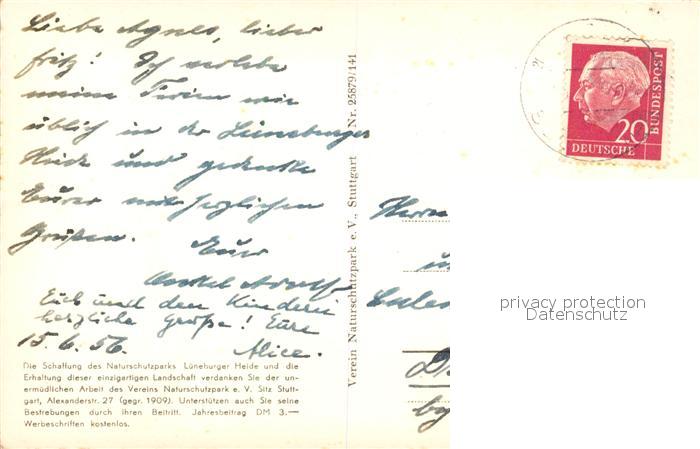 Liebe Agnes, lieber
Fritz! Ich verlebe
meine Ferien wie
üblich in der Lüneburger
Heide und gedenke
Eurer mit herzlichen
Grüßen. Euer
Onkel Adolf
Euch und den Kindern
herzliche Grüße! Eure
15.6.56. Alice.
Die Schaffung des Naturschutzparks Lüneburger Heide und die
Erhaltung dieser einzigartigen Landschaft verdanken Sie der un-
ermüdlichen Arbeit des Vereins Naturschutzpark e. V. Sitz Stutt-
gart, Alexanderstr. 27 (gegr. 1909). Unterstützen auch Sie seine
Bestrebungen durch ihren Beitritt. Jahresbeitrag DM 3.—
Werbeschriften kostenlos.
Verein Naturschutzpark e. V., Stuttgart Nr. 25879/141
20
DEUTSCHE
BUNDESPOST
Herrn
privacy protection
Datenschutz